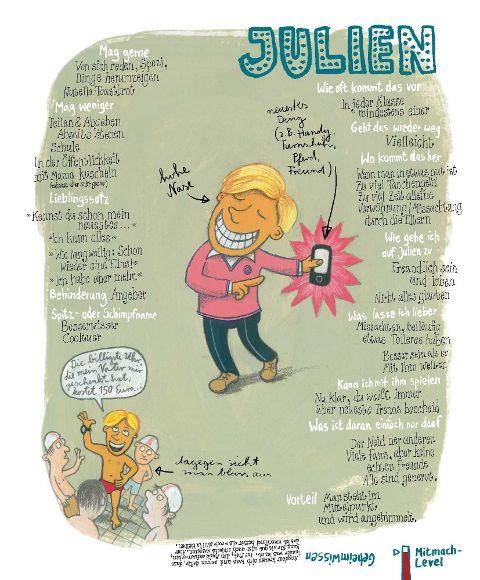 JULIEN
Mag gerne
Von sich reden, Spezi,
Dinge herumzeigen
Nutella-Toastbrot
Mag weniger
Teilen & Abgeben
Abseits stehen
Schule
In der Öffentlichkeit
mit Mama kuscheln
Lieblingssatz
»Kennst du schon mein
neuestes ...«
»Ich kann alles«
»Wie langweilig: Schon
wieder eine Eins«
»Ich habe aber mehr.«
Behinderung Angeber
Spitz- oder Schimpfname
Besserwisser
Coolman
hohe
Nase
neuestes
Ding
(z.B. Handy,
Turnschuh,
Pferd,
Freund)
Wie oft kommt das vor
In jeder Klasse
mindestens einer
Geht das wieder weg
Vielleicht
Wo kommt das her
Wenn man in etwas gut ist
Zu viel Taschengeld
Zu viel Zeit alleine
Verwöhnung / Missachtung
durch die Eltern
Wie gehe ich
auf Julien zu
Freundlich sein
und loben
Nicht alles glauben
Was lasse ich lieber
Missachten, beiläufig
etwas Tolleres haben
Besser sein als er
Mit ihm wetten
Kann ich mit ihm spielen
Na klar, du weißt immer
über neueste Trends bescheid
Was ist daran einfach nur doof
Der Neid der anderen
Viele Fans, aber keine
echten Freunde
Alle sind genervt.
Vorteil Man steht im
Mittelpunkt
und wird angehimmelt.
Die billigste Uhr,
die mein Vater mir
geschenkt hat,
kostet 150 Euro.
dagegen sieht
man blass aus
Geheimwissen
Mitmach-
Level